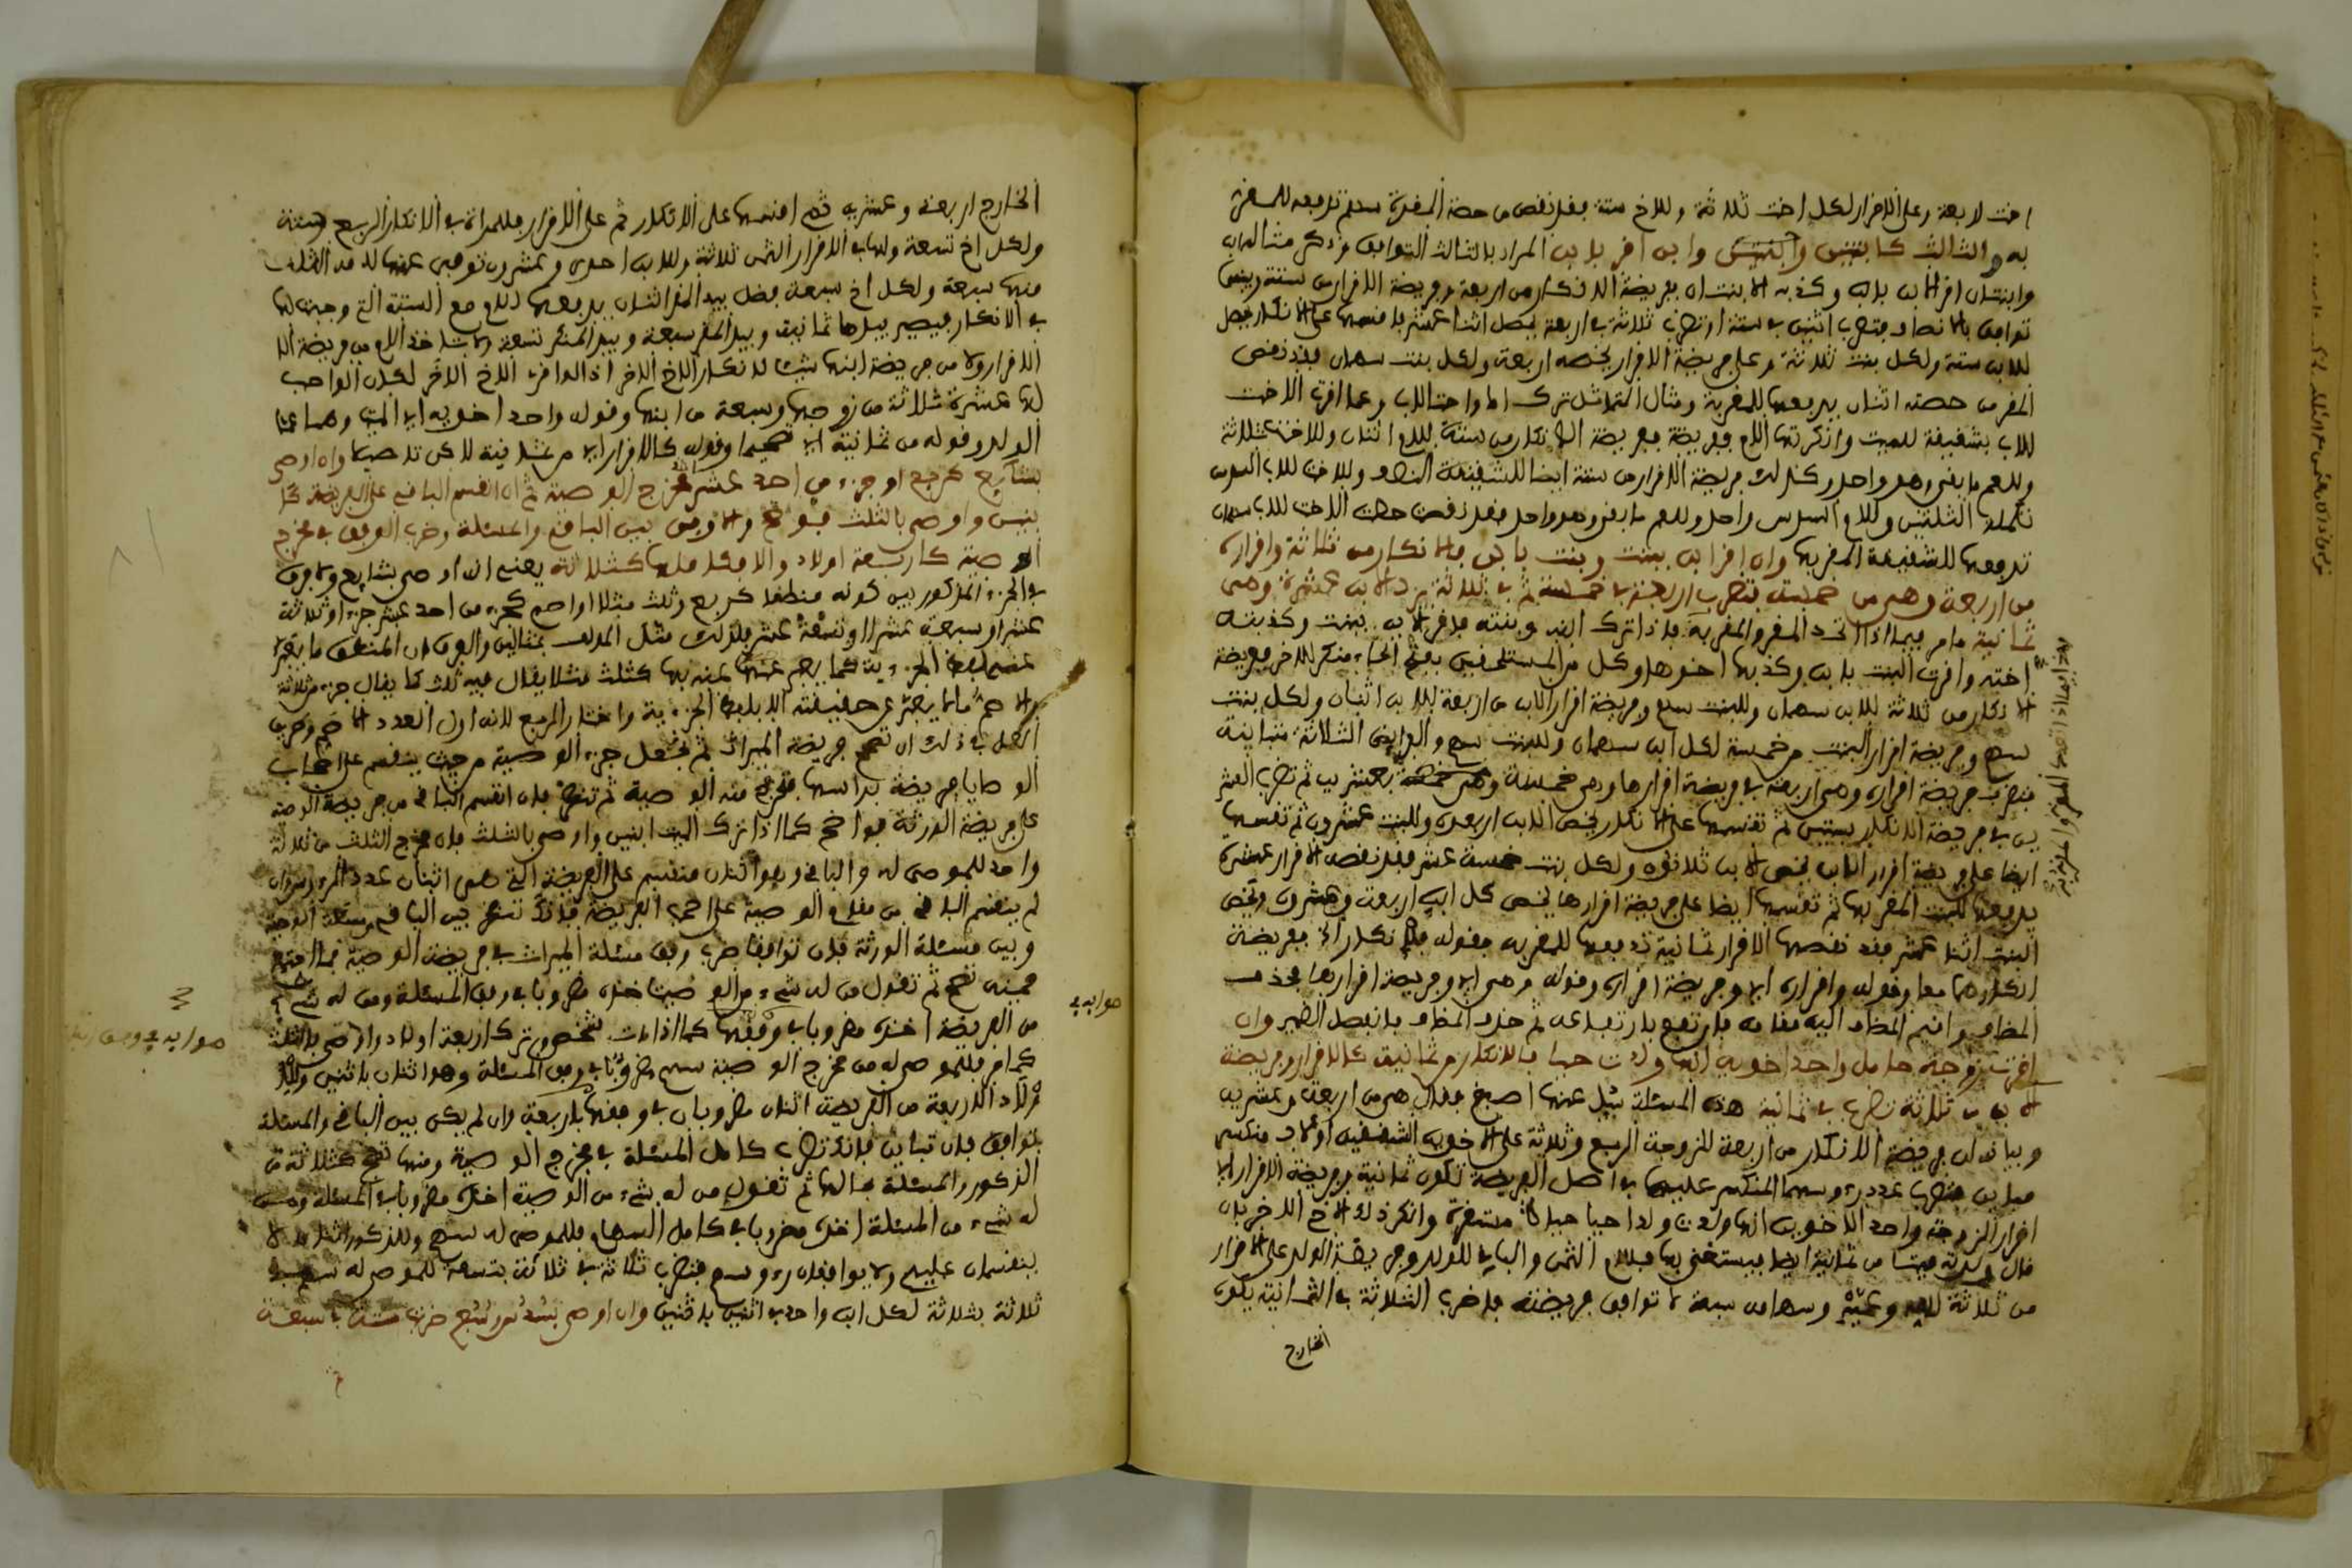 اخت اربعة وعلى الاقرار لكل اخت ثلاثة وللاخ ستة فقد نقص من حصة المقرة سهم تدفعه للمقر
به والثالث كابنتين وابن اقر بابن المراد بالثالث التوافق وذكر مثاله
وابنتان اقر الابن بابن وكذبه الابنتان ففريضة الانكار من اربعة وفريضة الاقرار من ستة وبينهما
توافق بالانصاف فتضرب اثنين في ستة او تضرب ثلاثة في اربعة يحصل اثنا عشر فاقسمها على الانكار يحصل
للابن ستة ولكل بنت ثلاثة وعلى فريضة الاقرار يخصه اربعة ولكل بنت سهمان فقد نقص
المقر من حصته اثنان يدفعهما للمقر به ومثال التماثل ترك اما واختا لاب وعما اقرت الاخت
للاب بشقيقة للميت وانكرتها الام ففريضة الانكار من ستة للام اثنان وللاخت ثلاثة
وللعم ما بقي وهو واحد وكذلك فريضة الاقرار من ستة ايضا للشقيقة النصف وللاخت للاب السدس
تكملة الثلثين وللام السدس واحد وللعم ما بقي وهو واحد فقد نقصت حصة الاخت للاب سهمان
تدفعهما للشقيقة المقر بها وان اقر ابن ببنت وبنت بابن فالانكار من ثلاثة واقراره
من اربعة وهي من خمسة فتضرب اربعة في خمسة ثم في ثلاثة يرد الابن عشرة وهي
ثمانية ما مر فيما اذا اتحد المقر والمقر به فاذا ترك ابنه وبنته فاقر الابن ببنت وكذبته
اخته واقرت البنت بابن وكذبها اخوها وكل من المستلحقين بفتح الحاء منكر للاخر ففريضة
الانكار من ثلاثة للابن سهمان وللبنت سهم وفريضة اقرار الابن من اربعة للابن اثنان ولكل بنت
سهم وفريضة اقرار البنت من خمسة لكل ابن سهمان وللبنت سهم والفرائض الثلاثة متباينة
فتضرب فريضة اقراره وهي اربعة في فريضة اقرارها وهي خمسة بعشرين ثم تضرب العشر
ين في فريضة الانكار بستين ثم تقسمها على الانكار يخص الابن اربعون وللبنت عشرون ثم تقسمها
ايضا على فريضة اقرار الابن يخص الابن ثلاثون ولكل بنت خمسة عشر فقد نقصه الاقرار عشرة
يدفعها للبنت المقر بها ثم تقسمها ايضا على فريضة اقرارها يخص كل ابن اربعة وعشرون ويخص
البنت اثنا عشر فقد نقصها الاقرار ثمانية تدفعها للمقر به فقوله فالانكار اي ففريضة
انكارهما معا وقوله واقراره اي وفريضة اقراره وقوله وهي اي وفريضة اقرارها فحذف
المضاف واقيم المضاف اليه مقامه فارتفع بارتفاعه ثم حذف المضاف فانفصل الضمير وان
اقرت زوجة حامل واحد اخويه انها ولدت حيا فالانكار من ثمانية كالاقرار وفريضة
الابن من ثلاثة تضرب في ثمانية هذه المسئلة سئل عنها اصبغ فقال هي من اربعة وعشرين
وبيانه ان فريضة الانكار من اربعة للزوجة الربع وثلاثة على الاخوين الشقيقين او للاب منكسر
مباين فتضرب عدد رءوسهما المنكسر عليهما في اصل الفريضة تكون ثمانية وفريضة الاقرار اي
اقرار الزوجة واحد الاخوين انها ولدت ولدا حيا حياة مستقرة وانكر ذلك الاخ الاخر بان
قال ولدته ميتا من ثمانية ايضا فيستغنى بها فللام الثمن والباقي للولد وفريضة الولد على الاقرار
من ثلاثة لامه وعميه وسهامه سبعة لا توافق فريضته فاضرب الثلاثة في الثمانية يكون
الخارج
الخارج اربعة وعشرين ثم اقسمها على الانكار ثم على الاقرار فللمراة في الانكار الربع ستة
ولكل اخ تسعة ولها في الاقرار الثمن ثلاثة وللابن احدى وعشرون توفي عنها لامه الثلث
منها سبعة ولكل اخ سبعة فضل بيد المقر اثنان يدفعهما للام مع الستة التي وجبت لها
في الانكار فيصير بيدها ثمانية وبيد المقر سبعة وبيد المنكر تسعة ولا تاخذ الام من فريضة
الاقرار ولا من فريضة ابنها شيئا لانكار الاخ الاخر اذ لو اقر الاخ الاخر لكان الواجب
لها عشرة ثلاثة من زوجها وسبعة من ابنها وقوله واحد اخويه اي الميت وهما عما
الولد وقوله من ثمانية اي تصحيحا وقوله كالاقرار اي من ثمانية لاكن تاصيلا وان اوصى
بشايع كربع او جزء من احد عشر اخذ مخرج الوصية ثم ان انقسم الباقي على الفريضة كا
بنين واوصى بالثلث فواضح والا وفق بين الباقي والمسئلة وضرب الوفق في مخرج
الوصية كاربعة اولاد والا فكاملها كثلاثة يعني ان اوصى بشايع ولا فرق
في الجزء المذكور بين كونه منطقا كربع وثلث مثلا او اصم كجزء من احد عشر جزءا او ثلاثة
عشر او سبعة عشر او تسعة عشر فلذلك مثل المولف بمثالين والفرق ان المنطق ما يعبر
عنه بلفظ الجزئية كما يعبر عنه بغيرها كثلث مثلا يقال فيه ثلث كما يقال جزء من ثلاثة
والاصم ما لا يعبر عن حقيقته الا بلفظ الجزئية واختار الربع لانه اول العدد الاصم وضرب
العمل في ذلك ان تصح فريضة الميراث ثم تجعل جزء الوصية من حيث ينقسم على اصحاب
الوصايا فريضة براسها فتخرج منه الوصية ثم تنظر فان انقسم الباقي من فريضة الوصية
على فريضة الورثة فواضح كما اذا ترك الميت ابنين واوصى بالثلث فان مخرج الثلث من ثلاثة
واحد للموصى له والباقي وهو اثنان منقسم على الفريضة التي هي اثنان عدد الرءوس وان
لم ينقسم الباقي من مقام الوصية على اصحاب الفريضة فانك تنظر بين الباقي من مسئلة الوصية
وبين مسئلة الورثة فان توافقا ضرب وفق مسئلة الميراث في فريضة الوصية فما اجتمع
فمنه تصح ثم تقول من له شيء من الوصية اخذه مضروبا في وفق المسئلة ومن له شيء
من الفريضة اخذه مضروبا في وفقها كما اذا مات شخص وترك اربعة اولاد واوصى بالثلث
كما مر فللموصى له من مخرج الوصية سهم مضروبا في وفق المسئلة وهو اثنان باثنين
وللاولاد الاربعة من الفريضة اثنان مضروبان في وفقها باربعة وان لم يكن بين الباقي والمسئلة
توافق فان تباين فانك تضرب كامل المسئلة في مخرج الوصية ومنها تصح كثلاثة من
الذكور والمسئلة بحالها ثم تقول من له شيء من الوصية اخذه مضروبا في المسئلة ومن
له شيء من المسئلة اخذه مضروبا في كامل السهام فللموصى له سهم وللذكور اثنان لا
ينقسمان عليهم ولا يوافقان رءوسهم فتضرب ثلاثة في ثلاثة بتسعة للموصى له سهم في
ثلاثة بثلاثة لكل ابن واحد في اثنين باثنين وان اوصى بسدس وسبع ضربت ستة في سبعة
صوابه في